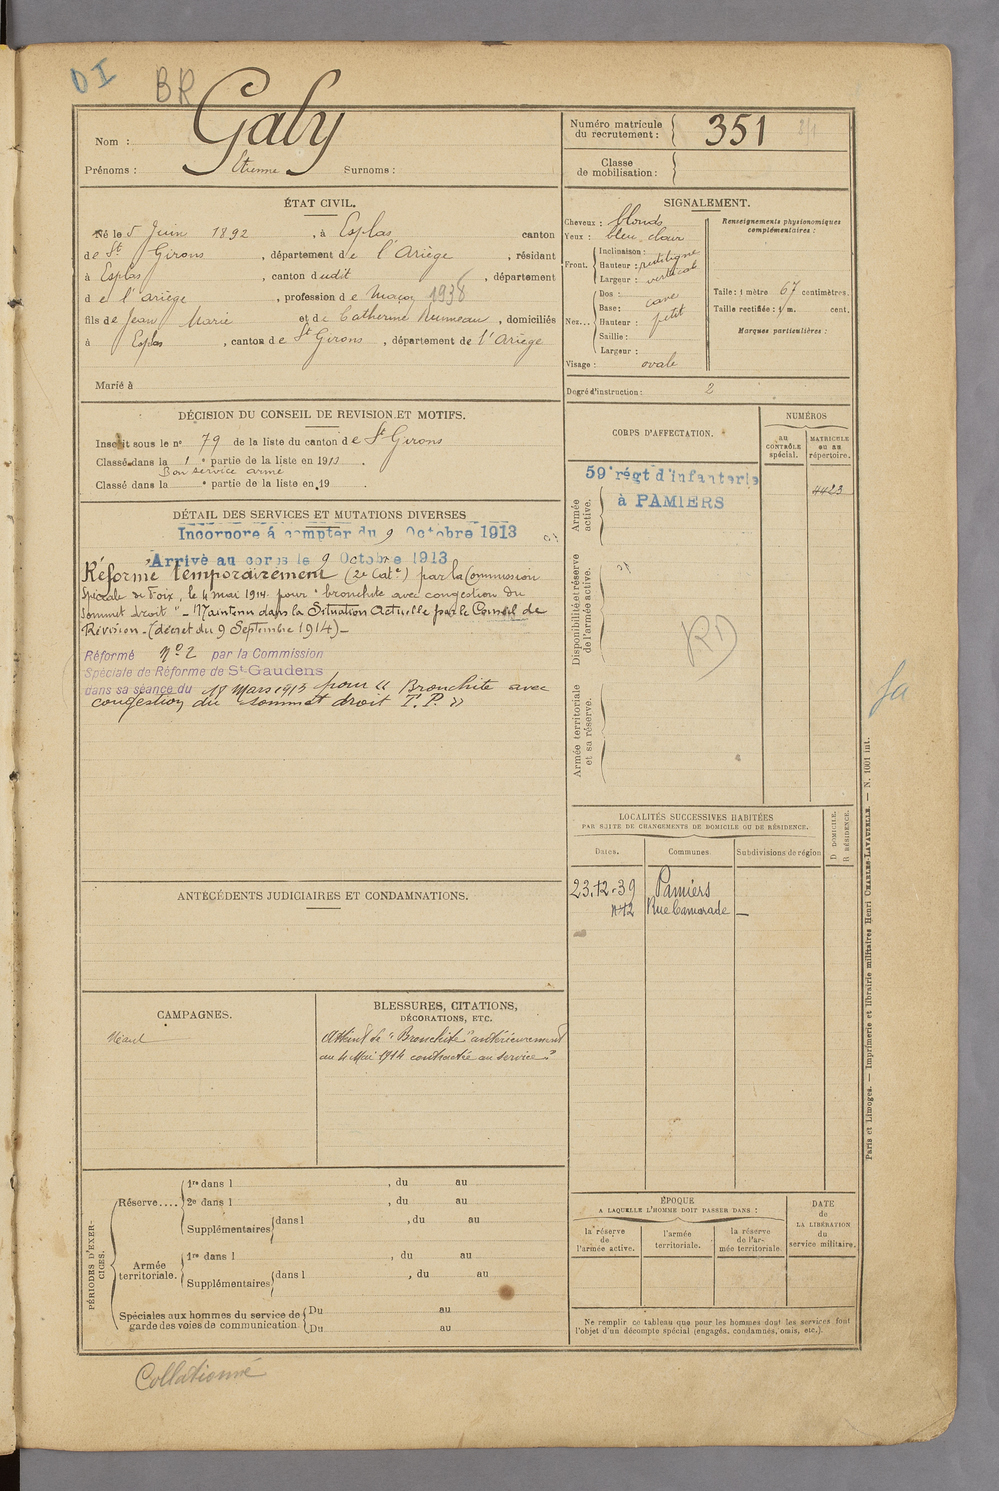 DI
BR
Nom : Gaby
Prénoms : Etienne Surnoms :
Numéro matricule du recrutement : 351
Classe de mobilisation :
ÉTAT CIVIL.
Né le 5 Juin 1892, à Esplas canton
de St Girons, département de l'Ariège, résidant
à Esplas, canton dudit, département
de l'ariège, profession de Maçon 1938
fils de Jean Marie et de Catherine, domiciliés
à Esplas, canton de St Girons, département de l'Ariège
Marié à
SIGNALEMENT.
Cheveux : blonds
Yeux : bleu clair
Front. Inclinaison :
Hauteur : rectiligne
Largeur : verticale
Nez... Dos :
Base : cave
Hauteur : petit
Saillie :
Largeur :
Visage : ovale
Renseignements physionomiques complémentaires :
Taille : 1 mètre 67 centimètres.
Taille rectifiée : 1 m. cent.
Marques particulières :
Degré d'instruction : 2
DÉCISION DU CONSEIL DE REVISION ET MOTIFS.
Inscrit sous le n° 79 de la liste du canton de St Girons
Classé dans la 1e partie de la liste en 1913.
Bon service armé
Classé dans la e partie de la liste en 19 .
CORPS D'AFFECTATION.
NUMÉROS
au CONTRÔLE spécial.
MATRICULE ou au répertoire.
Armée active.
59e régt d'infanterie
à PAMIERS
4423
Disponibilité et réserve de l'armée active.
RD
Armée territoriale et sa réserve.
fa
DÉTAIL DES SERVICES ET MUTATIONS DIVERSES
Incorporé à compter du 9 Octobre 1913
Arrivé au corps le 9 Octobre 1913
Réformé Temporairement (2e Cat.e) par la Commission
Spéciale de Foix, le 4 mai 1914 pour "bronchite avec congestion du
sommet droit" - Maintenu dans la Situation Actuelle par le Conseil de
Révision - (décret du 9 Septembre 1914) -
Réformé n°2 par la Commission
Spéciale de Réforme de St-Gaudens
dans sa séance du 18 Mars 1915 pour "Bronchite avec
congestion du sommet droit T.P."
ANTÉCÉDENTS JUDICIAIRES ET CONDAMNATIONS.
LOCALITÉS SUCCESSIVES HABITÉES
PAR SUITE DE CHANGEMENTS DE DOMICILE OU DE RÉSIDENCE.
Dates. Communes. Subdivisions de région
D DOMICILE.
R RÉSIDENCE.
23.12.39 Pamiers
n°12 Rue Camorade —
CAMPAGNES.
Néant
BLESSURES, CITATIONS,
DÉCORATIONS, ETC.
Atteint de "Bronchite" antérieurement
au 4 Mai 1914 contractée au service"
PÉRIODES D'EXERCICES.
Réserve.... 1re dans l , du au
2e dans l , du au
Supplémentaires dans l , du au
Armée territoriale. 1re dans l , du au
Supplémentaires dans l , du au
Spéciales aux hommes du service de garde des voies de communication Du au
Du au
ÉPOQUE
A LAQUELLE L'HOMME DOIT PASSER DANS :
la réserve de l'armée active.
l'armée territoriale.
la réserve de l'armée territoriale
DATE de LA LIBÉRATION du service militaire.
Ne remplir ce tableau que pour les hommes dont les services font
l'objet d'un décompte spécial (engagés, condamnés, omis, etc.).
Paris et Limoges. — Imprimerie et librairie militaires Henri CHARLES-LAVAUZELLE. — N. 1001 int.
Collationné